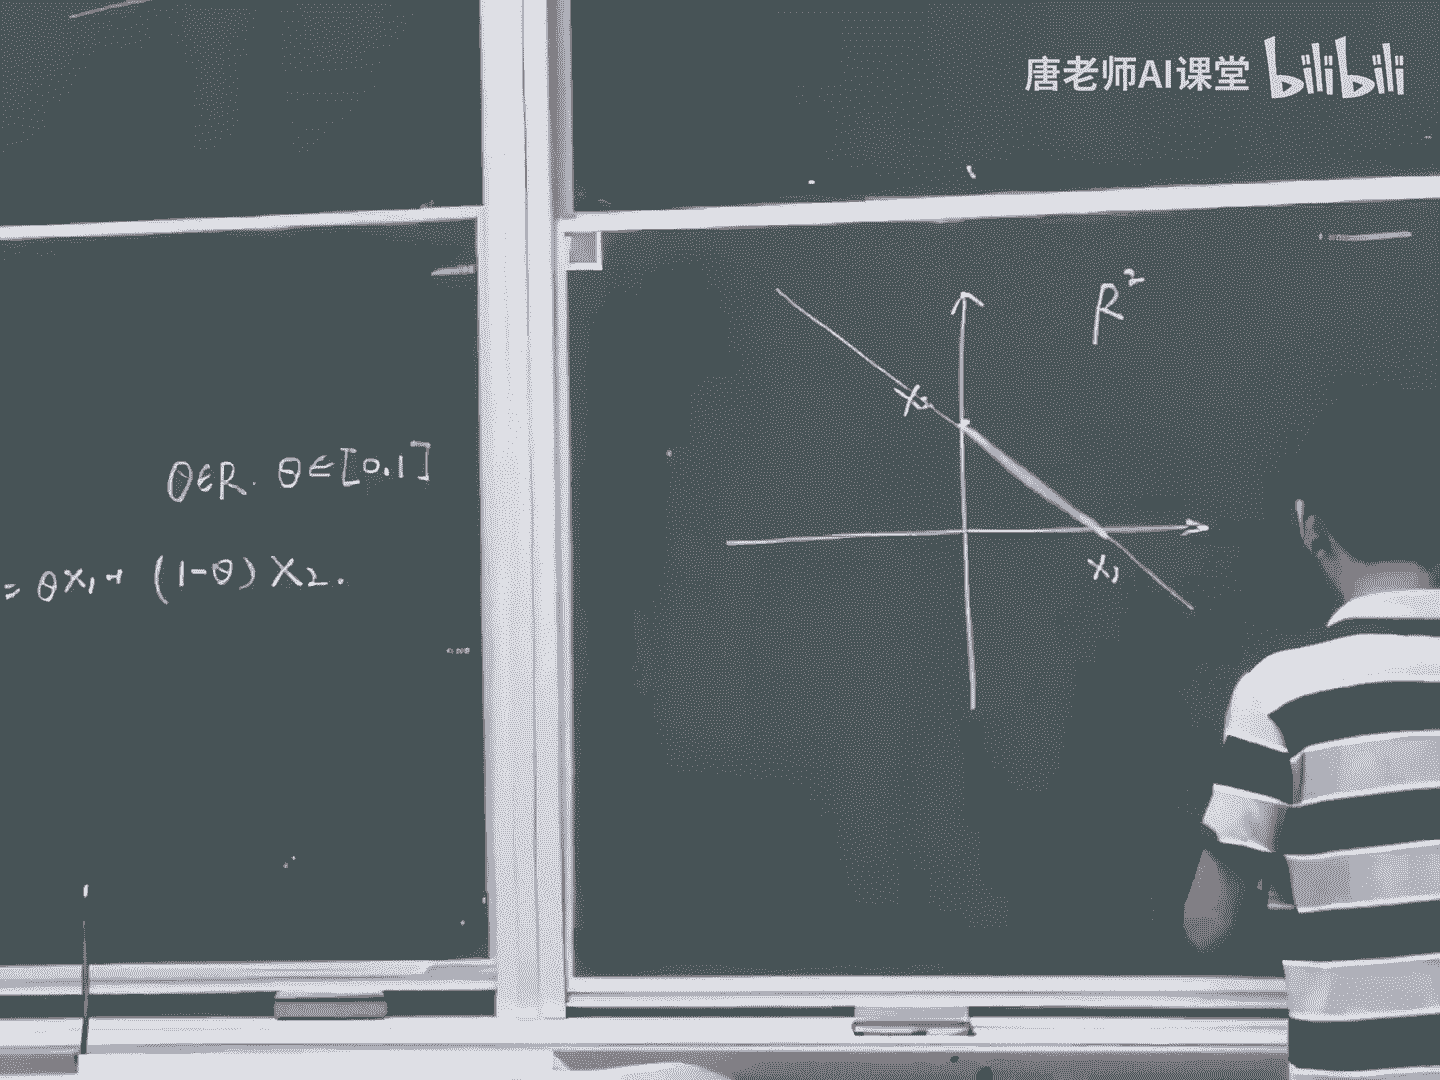 唐老师AI课堂 bilibili
θ∈R. θ∈[0.1]
= θx₁+ (1-θ) x₂.
R²
x₂
x₁